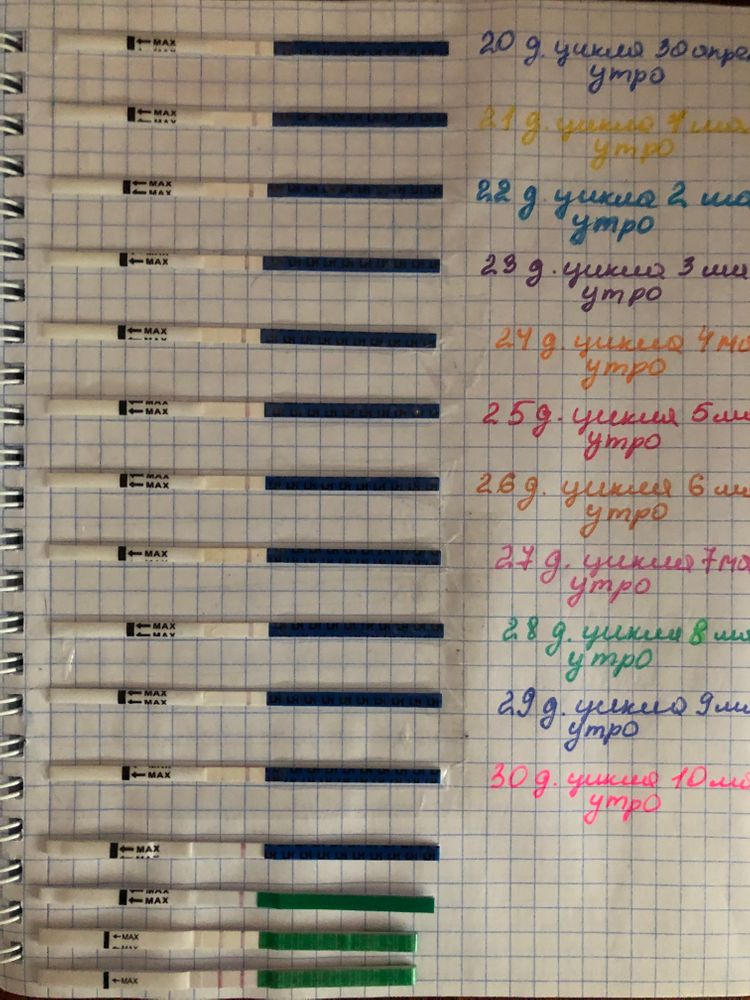 MAX
20 д. цикла 30 апре
утро
MAX
21 д. цикла 1 ма
утро
MAX
22 д. цикла 2 ма
утро
MAX
23 д. цикла 3 ма
утро
MAX
24 д. цикла 4 ма
утро
MAX
25 д. цикла 5 ма
утро
MAX
26 д. цикла 6 ма
утро
MAX
27 д. цикла 7 ма
утро
MAX
28 д. цикла 8 ма
утро
MAX
29 д. цикла 9 ма
утро
MAX
30 д. цикла 10 ма
утро
MAX
MAX
MAX
MAX